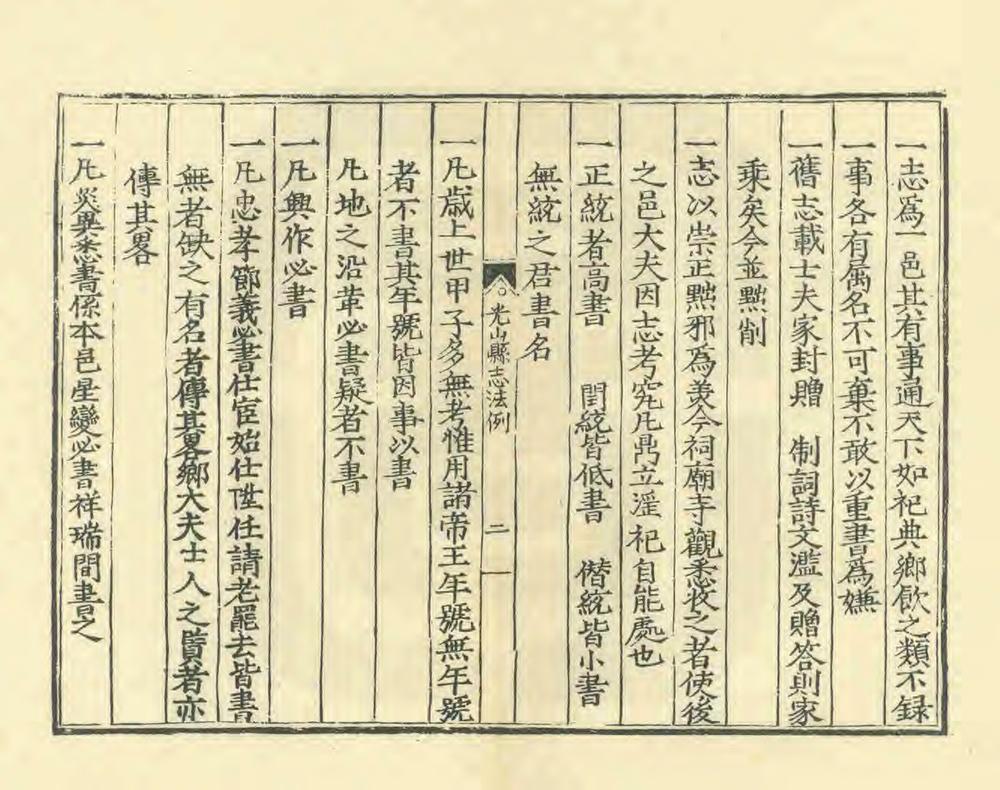 一志爲一邑其有事通天下如祀典鄉飲之類不録
一事各有属名不可棄不敢以重書爲嫌
一舊志載士夫家封贈　制詞詩文濫及贈答則家
乘矣今並黜削
一志以崇正黜邪爲義今祠廟寺觀悉收之者使後
之邑大夫因志考究凡鼎立滛祀自能處也
一正統者高書　閏統皆低書　僣統皆小書
無統之君書名
光山縣志法例
二
一凡歲上世甲子多無考惟用諸帝王年號無年號
者不書其年號皆因事以書
凡地之沿革必書疑者不書
一凡興作必書
一凡忠孝節義必書仕宦始仕陞任請老罷去皆書
無者缺之有名者傳其畧鄉大夫士人之賢者亦
傳其畧
一凡災異悉書係本邑星變必書祥瑞間書之